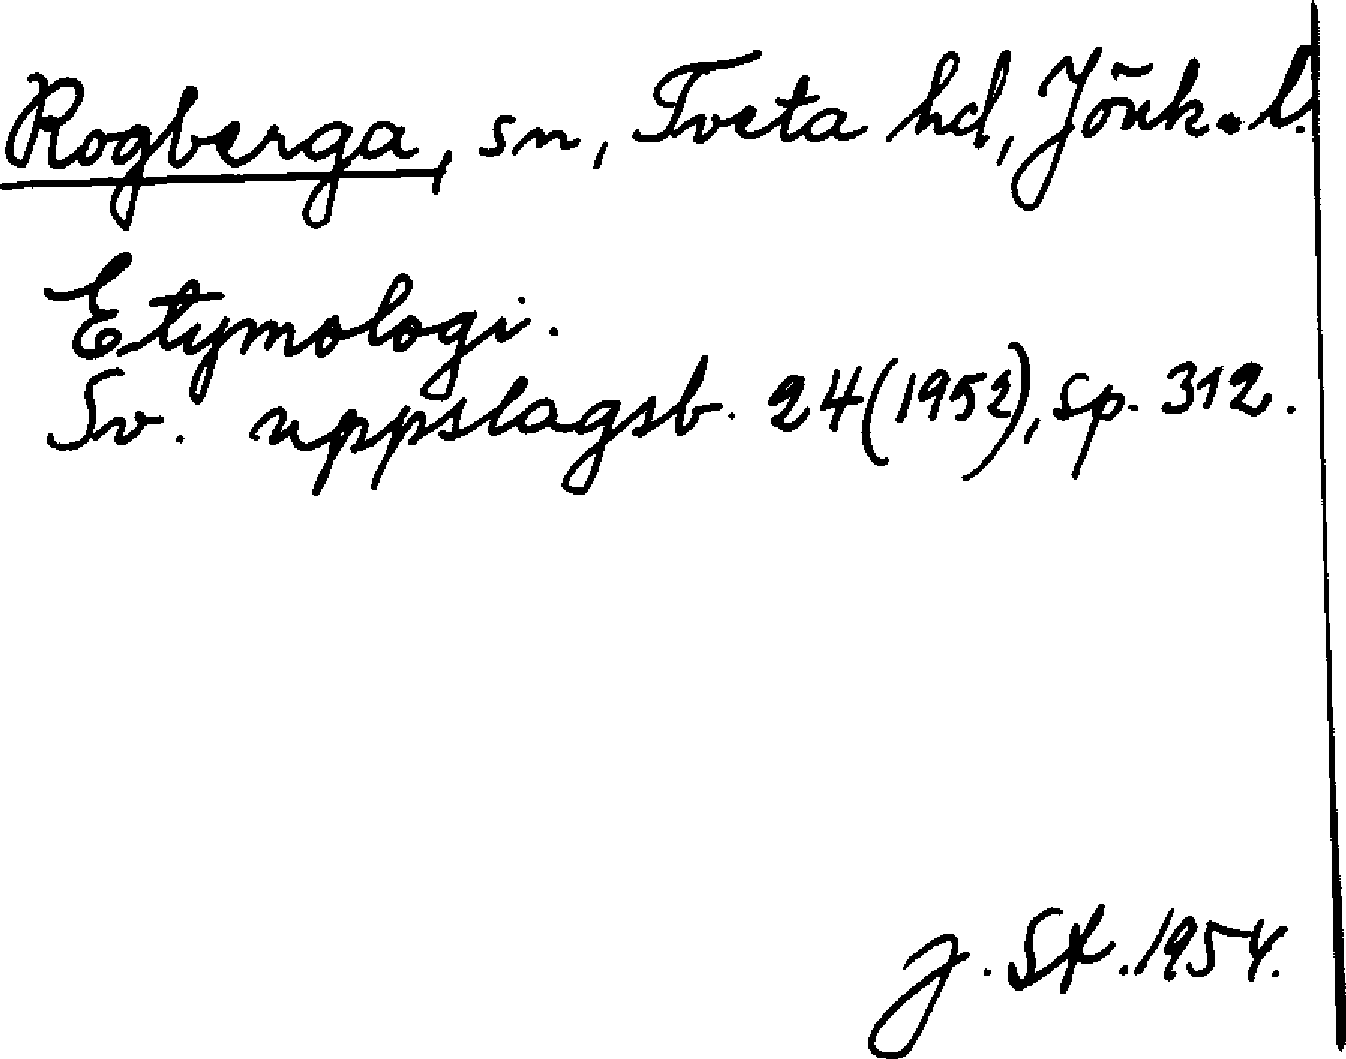 Rogberga, sn, Tveta hd, Jönk. l.
Etymologi.
Sv. uppslagsb. 24 (1952), sp. 312.
J. St. 1954.